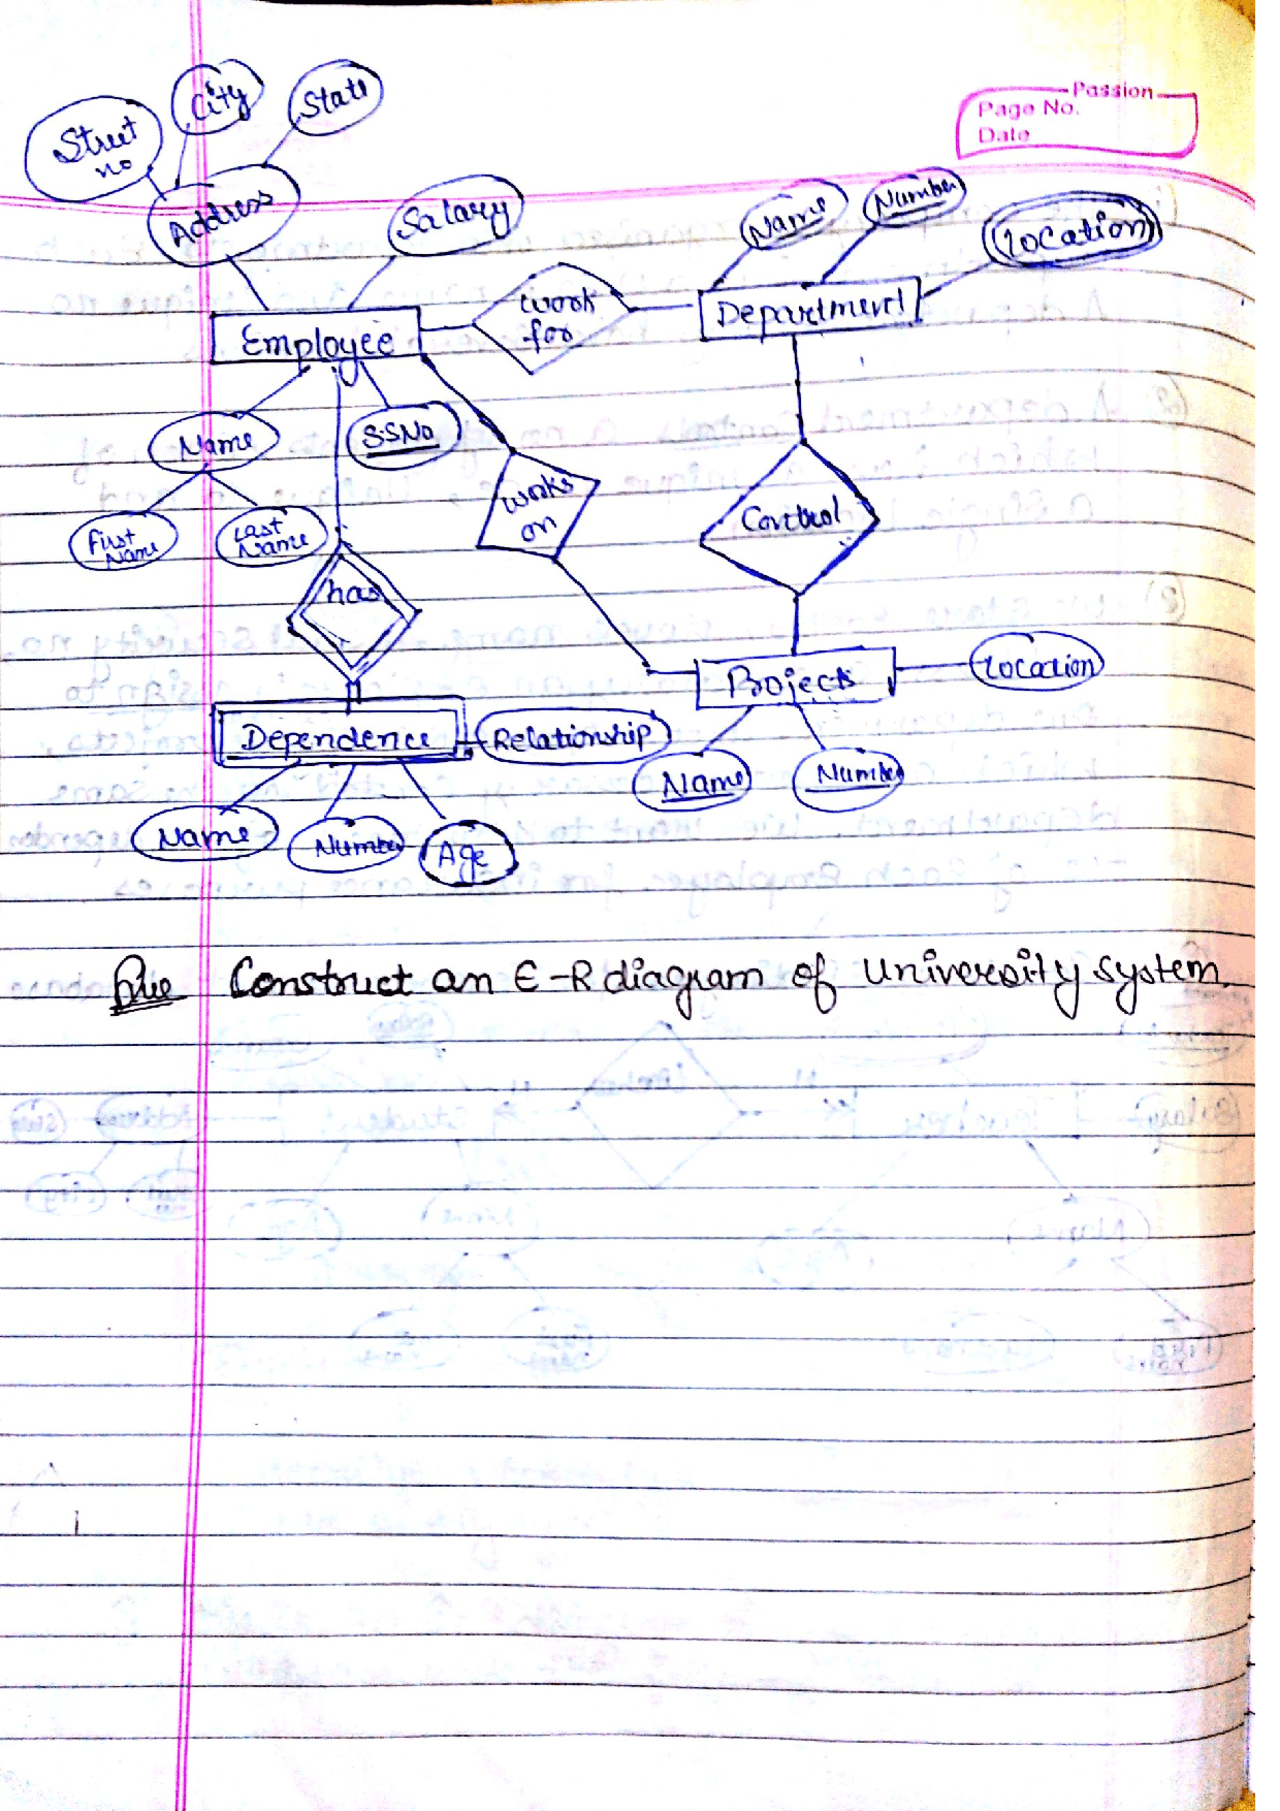 Passion
Page No.
Date
City
State
Street
no
Address
Salary
Name
Number
Location
Employee
work
for
Department
Name
SSNo
First
Name
Last
Name
works
on
Control
has
Projects
Location
Dependence
Relationship
Name
Number
Name
Number
Age
Que Construct an E-R diagram of University system.